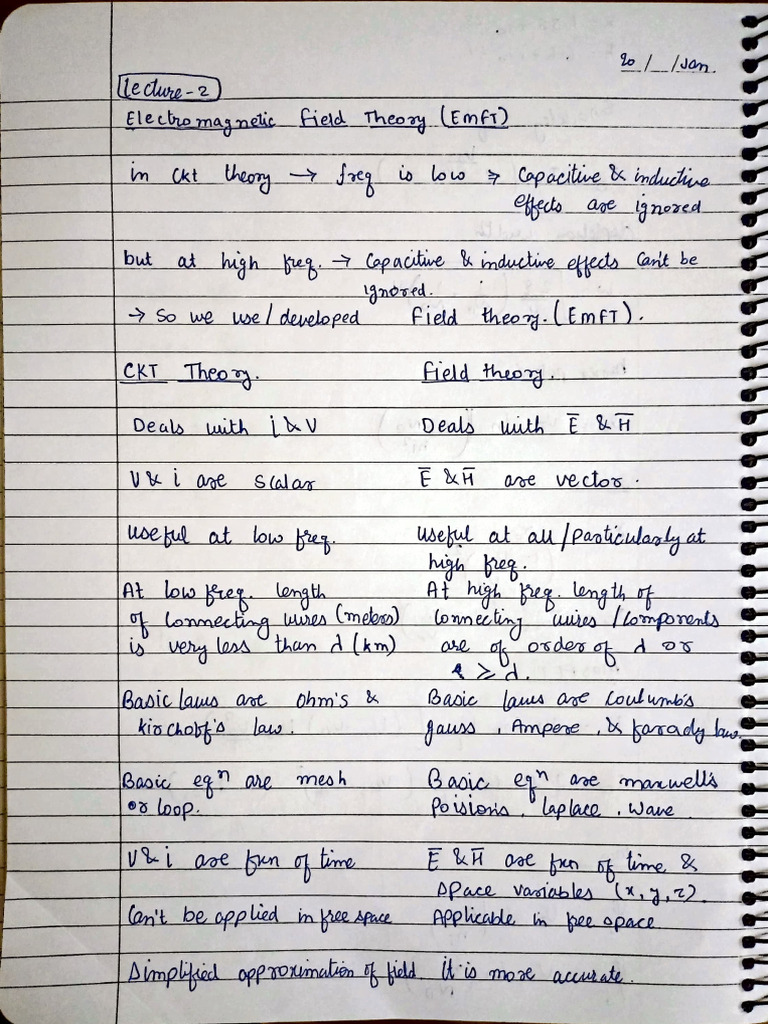 20/__/Jan.
Lecture-2
Electromagnetic Field Theory (EMFT)
in Ckt theory → freq is low ⇒ Capacitive & inductive
effects are ignored
but at high freq. → Capacitive & inductive effects Can't be
ignored.
→ So we use/developed Field theory. (EMFT).
CKT Theory. Field theory.
Deals with i & V Deals with E̅ & H̅
V & i are Scalar E̅ & H̅ are vector.
Useful at low freq. Useful at all/Particularly at
high freq.
At low freq. length At high freq. length of
of Connecting wires (meters) Connecting wires/Components
is very less than λ (km) are of order of λ or
≥ λ.
Basic laws are ohm's & Basic laws are Coulumb's
Kirchoff's law. gauss, Ampere, & farady law.
Basic eqⁿ are mesh Basic eqⁿ are maxwell's
or loop. Poision's, Laplace, Wave
V & i are fxn of time E̅ & H̅ are fxn of time &
Space variables (x, y, z).
Can't be applied in free space Applicable in free space
Simplified approximation of field It is more accurate.